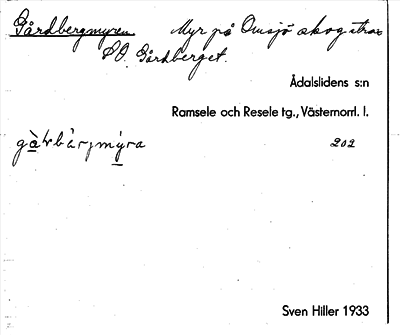 Gårdbergmyren Myr på Omsjö skog strax
SO. Gårdberget.
Ådalslidens s:n
Ramsele och Resele tg., Västernorrl. l.
202
Sven Hiller 1933